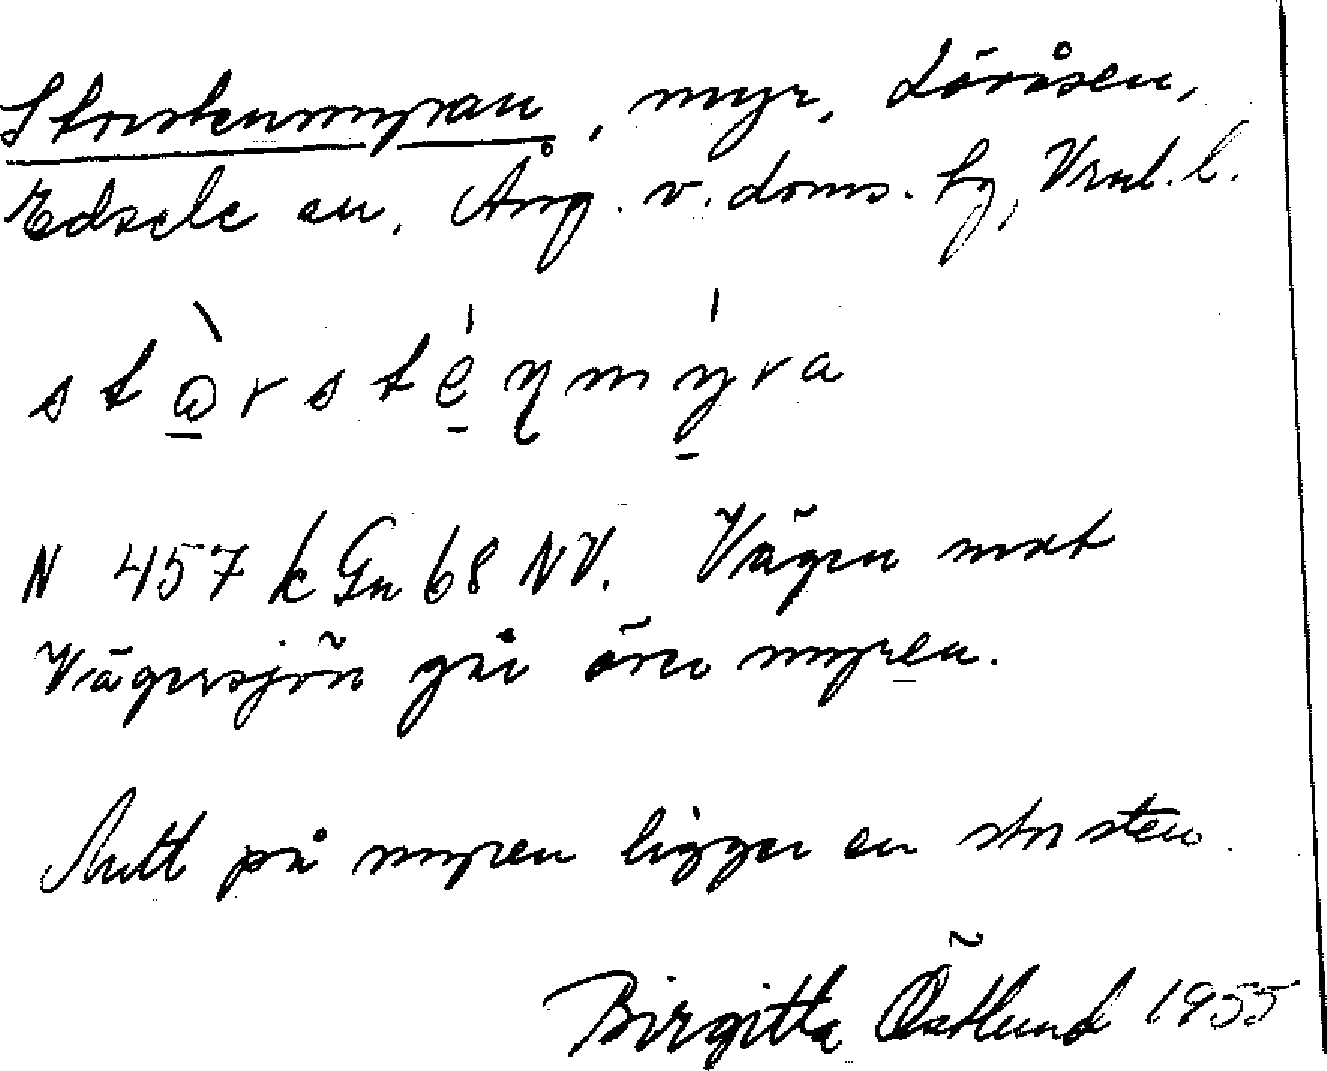 Storstenmyran, myr, Lövåsen,
Edsele sn. Ång. v. doms. hg, Vnl. l.
stɷ̀rsténmýra
N 457 k Gn 68 NV. Vägen mot
Vägersjön går över myren.
Mitt på myren ligger en stor sten.
Birgitta Östlund 1955